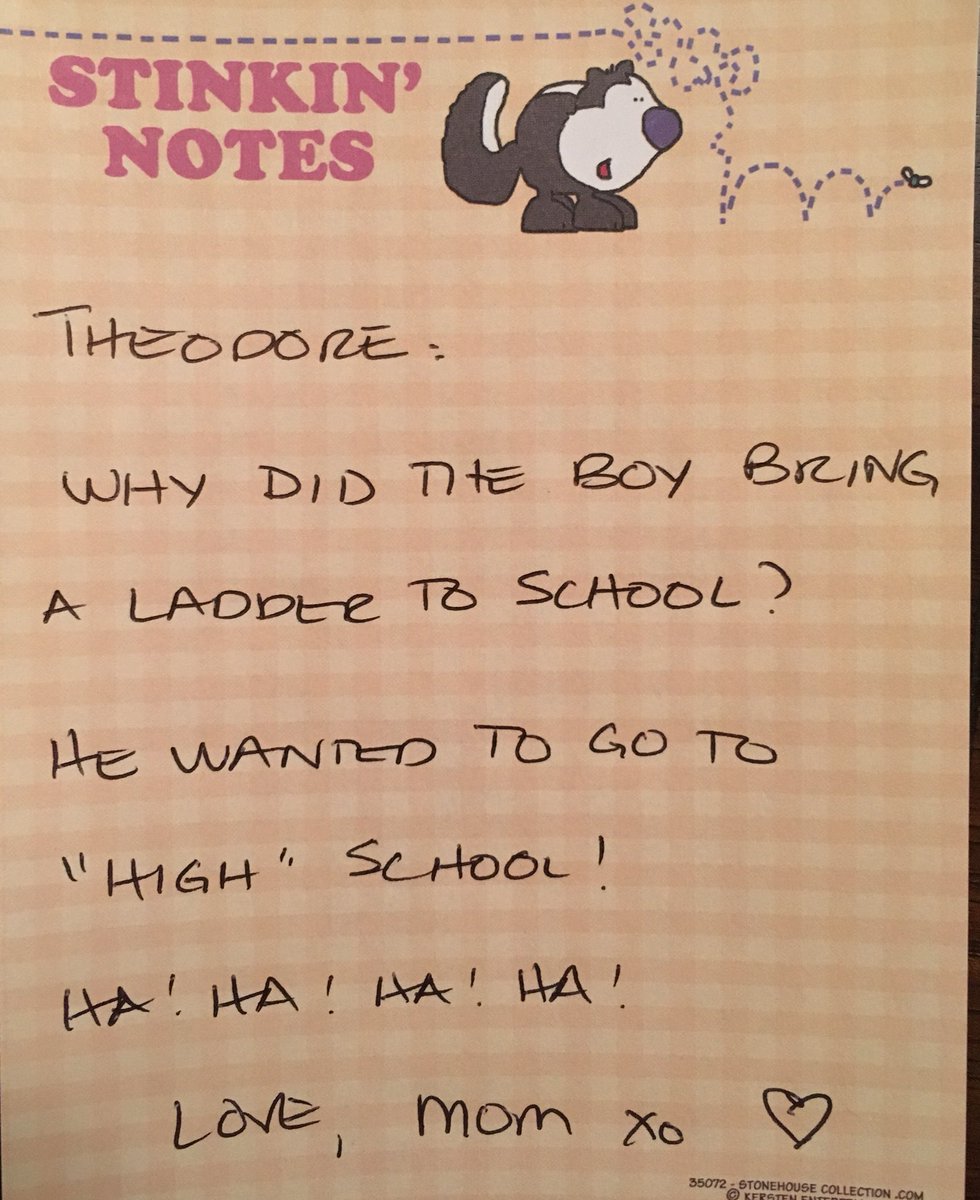 STINKIN'
NOTES
THEODORE:
WHY DID THE BOY BRING
A LADDER TO SCHOOL?
HE WANTED TO GO TO
"HIGH" SCHOOL!
HA! HA! HA! HA!
LOVE, MOM XO ♡
35072 - STONEHOUSE COLLECTION .COM
© KERSTEN